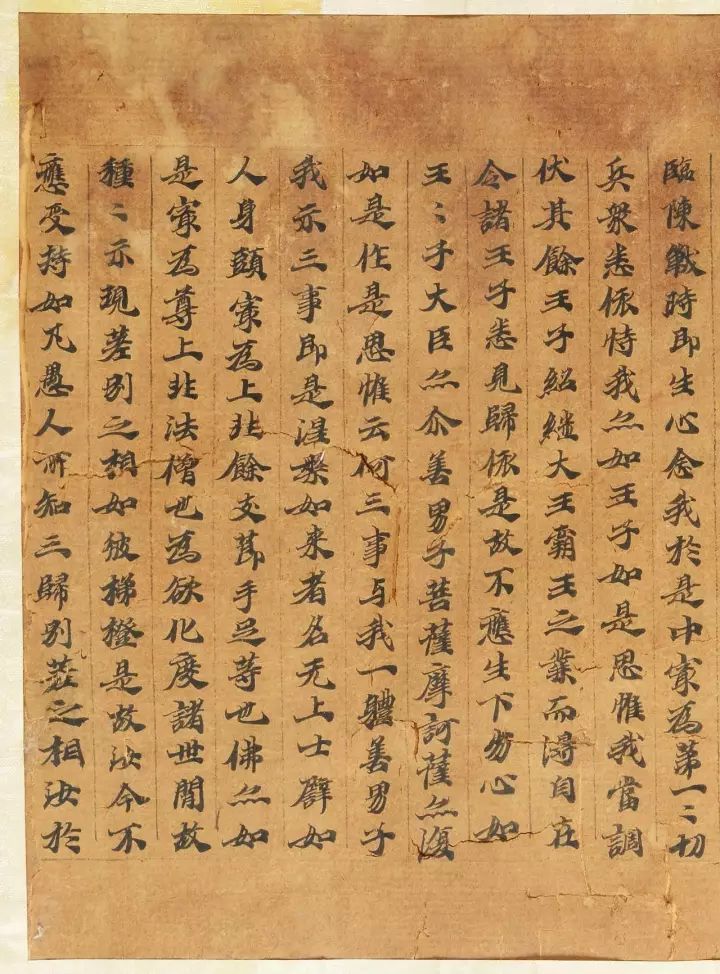 臨陳戰時即生心念我於是中寂為第一〻切
兵衆悉依恃我亦如王子如是思惟我當調
伏其餘王子紹繼大王霸王之業而得自在
令諸王子悉見歸依是故不應生下劣心如
王〻子大臣亦尒善男子菩薩摩訶薩亦復
如是作是思惟云何三事与我一體善男子
我示三事即是涅槃如来者名无上士譬如
人身頭寂為上非餘支節手足等也佛亦如
是寂為尊上非法僧也為欲化度諸世間故
種〻示現差別之相如彼梯橙是故汝今不
應受持如凡愚人所知三歸別差之相汝於